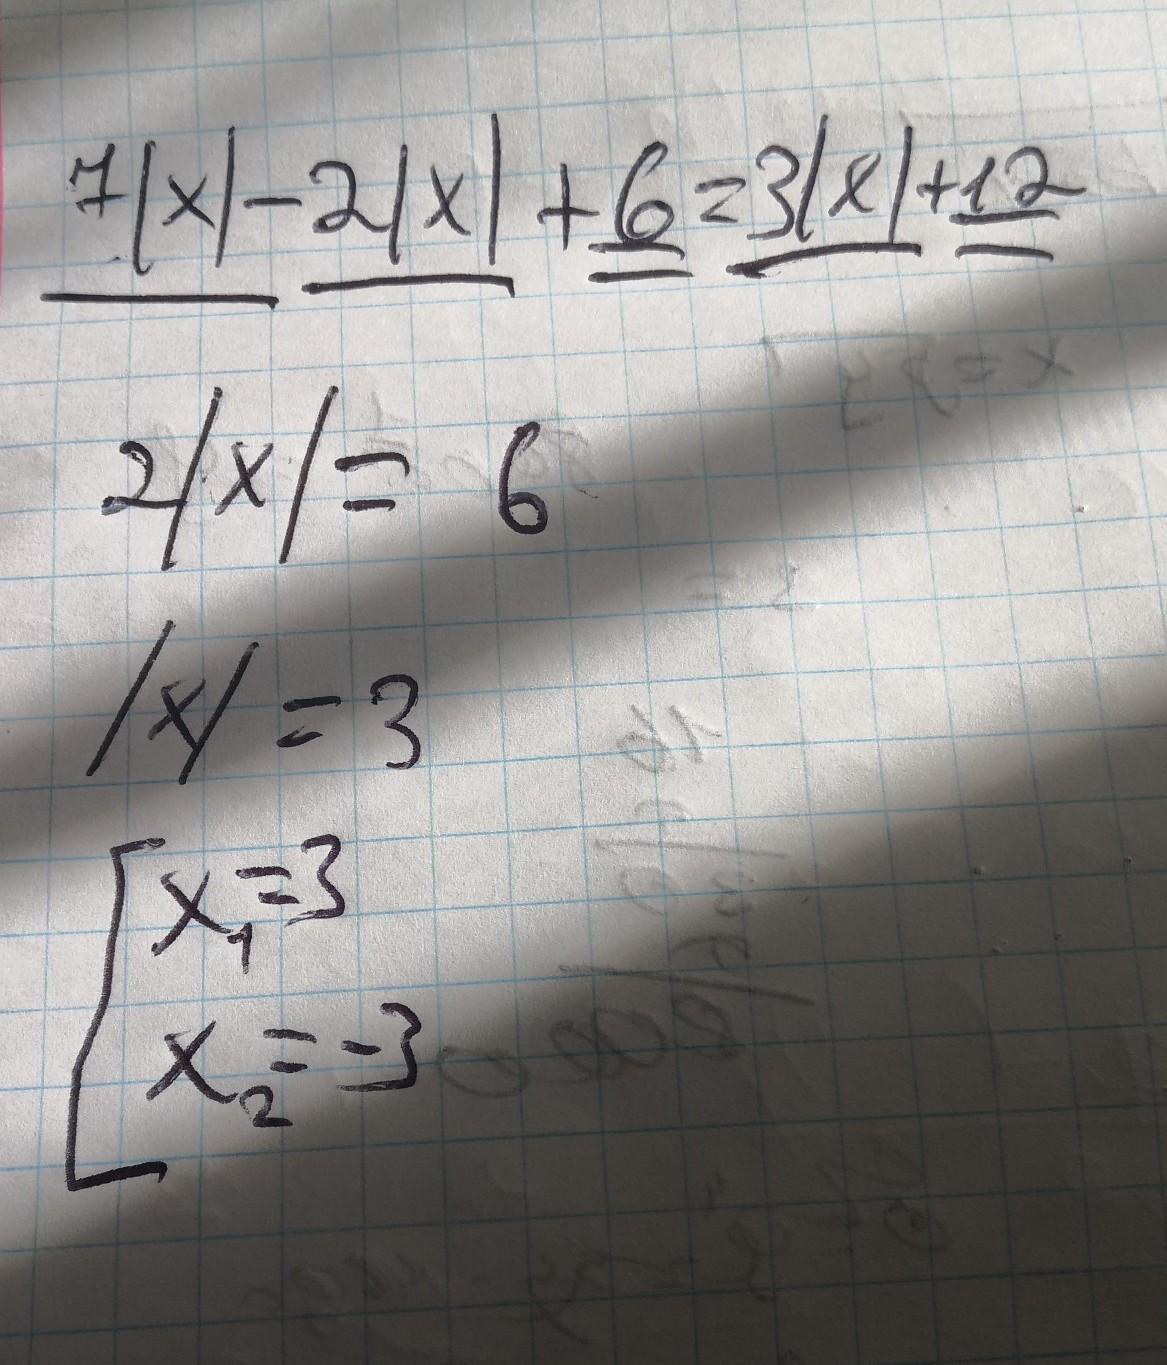 7|x|-2|x|+6=3|x|+12
2|x|=6
|x|=3
x₁=3
x₂=-3